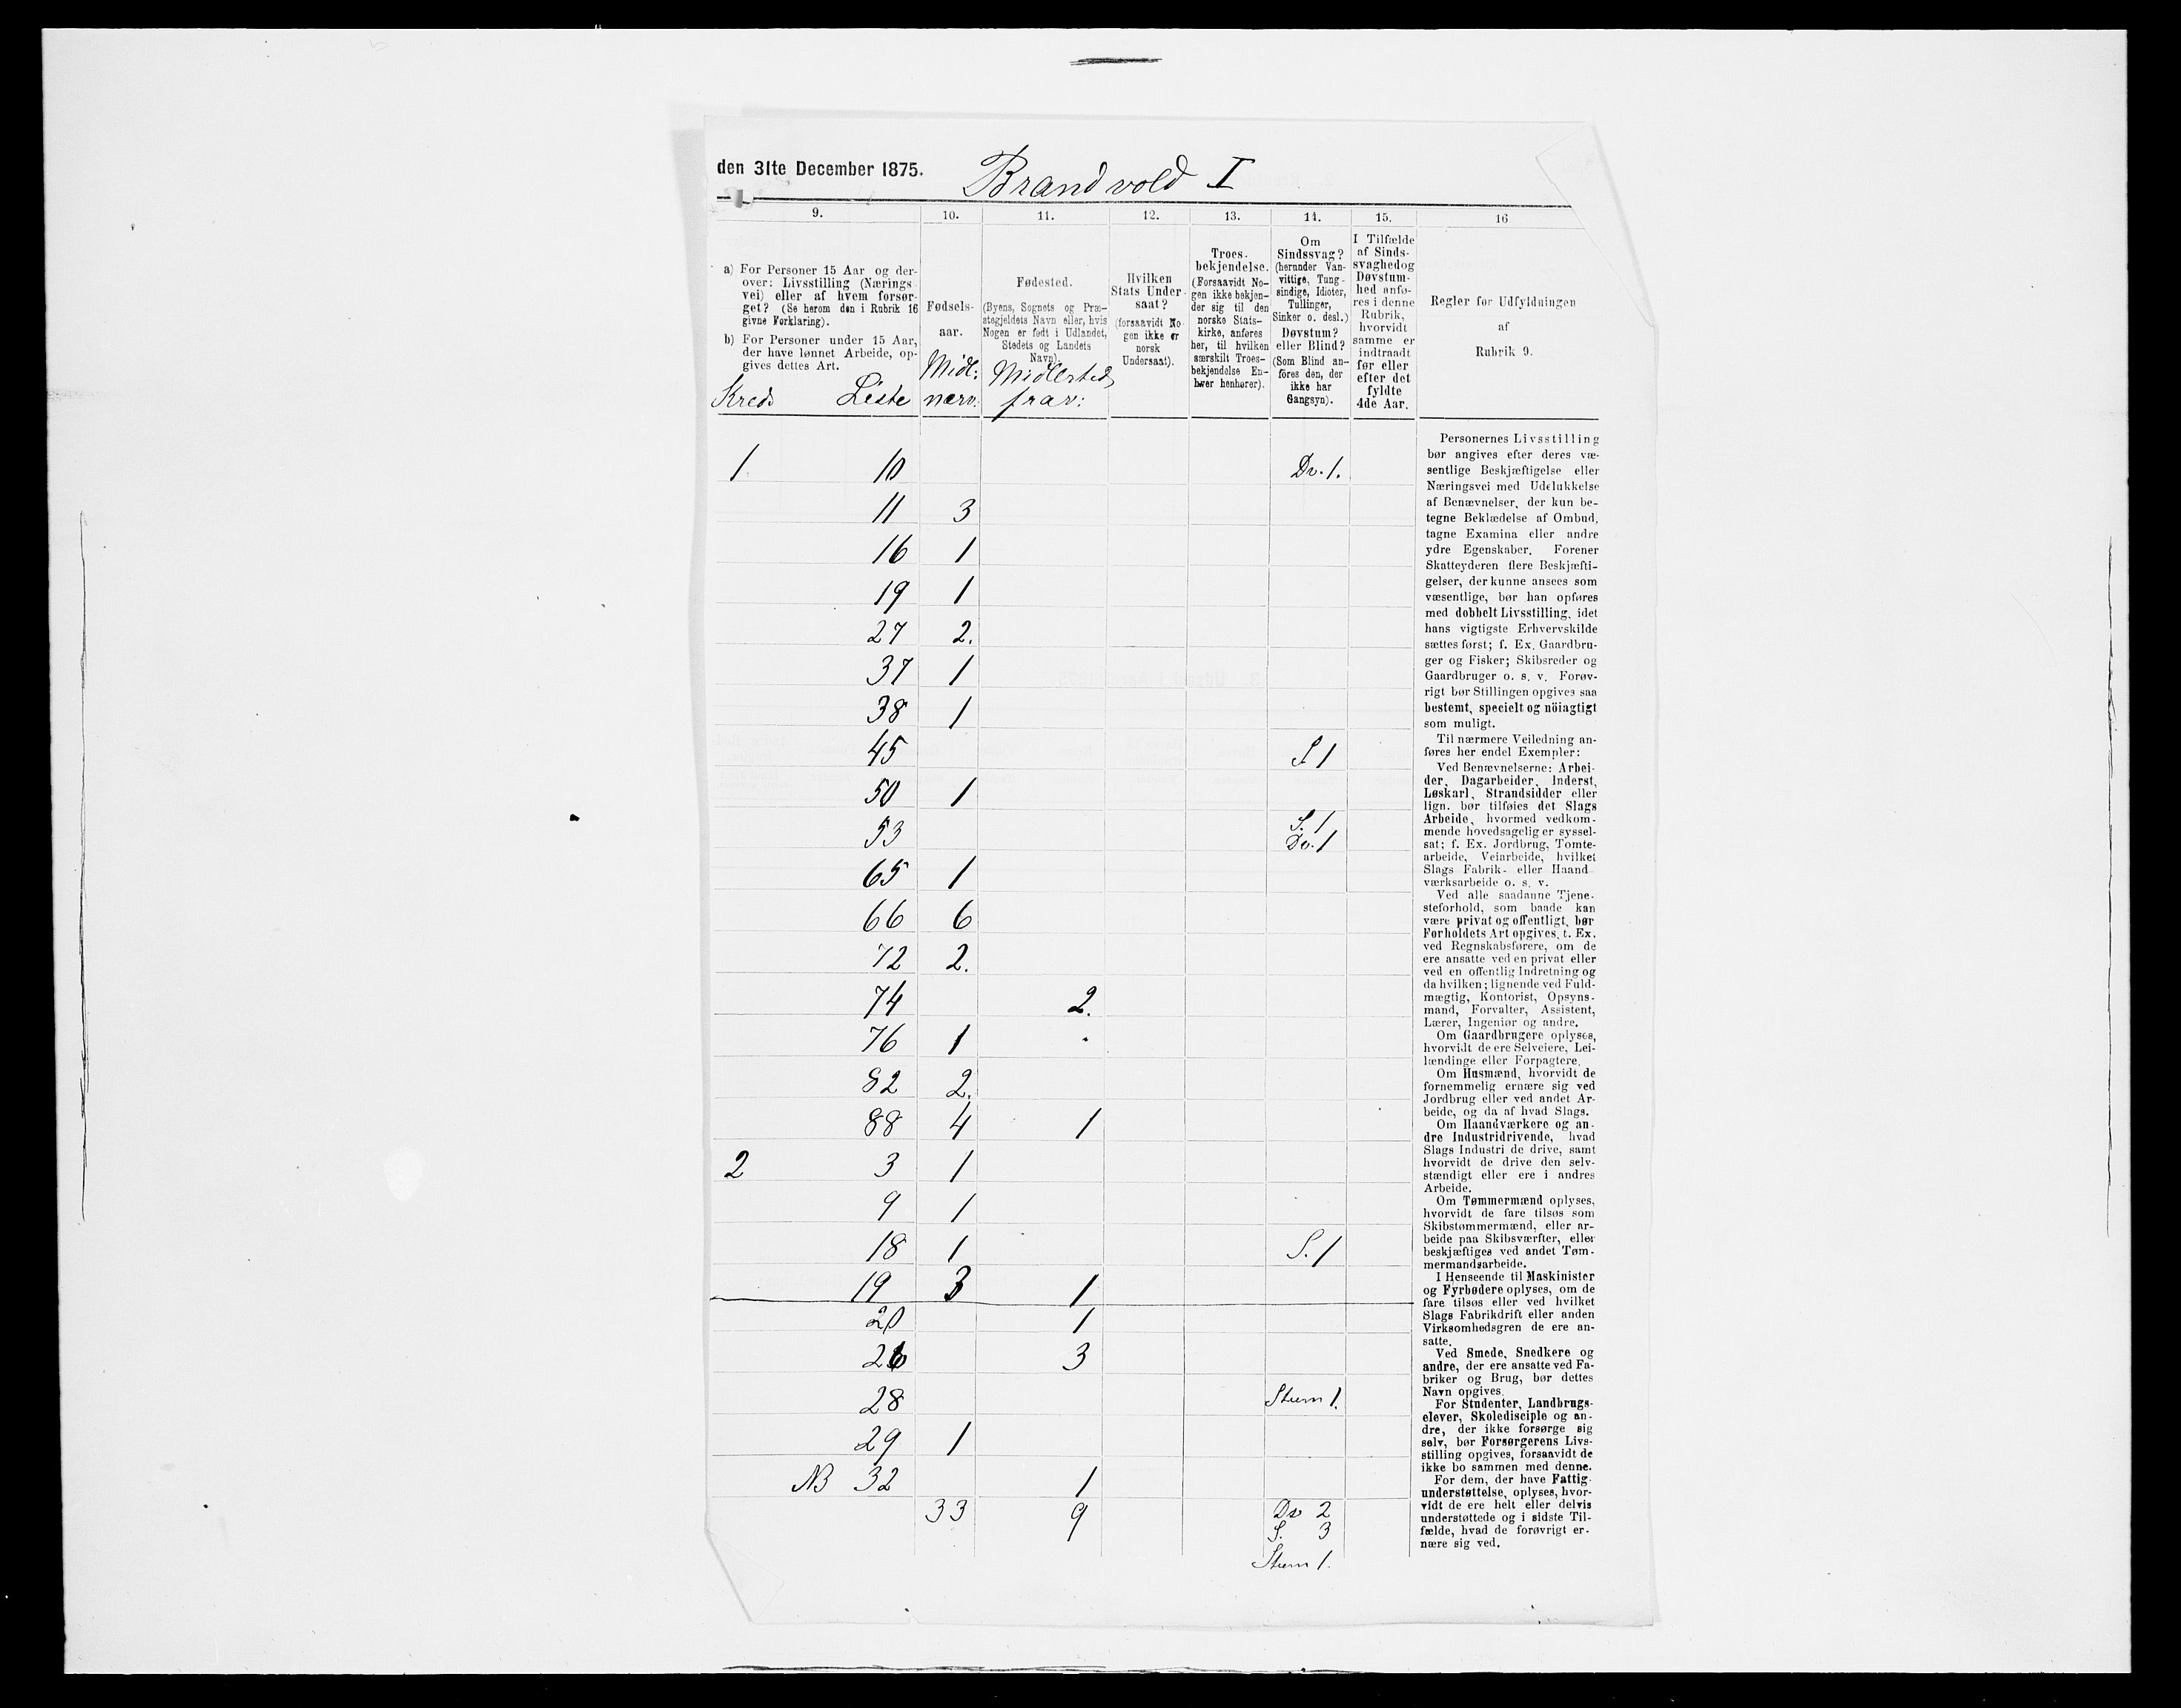 den 31te December 1875. Brandvold I
9. 10. 11. 12. 13. 14. 15. 16
a) For Personer 15 Aar og der-
over: Livsstilling (Nærings-
vei) eller af hvem forsør-
get? (Se herom den i Rubrik 16
givne Forklaring).
b) For Personer under 15 Aar,
der have lønnet Arbeide, op-
gives dettes Art.
Kreds Liste
Fødsels-
aar.
Midl:
nærv:
Fødested.
(Byens, Sognets og Præ-
stegjeldets Navn eller, hvis
Nogen er født i Udlandet,
Stedets og Landets
Navn).
Midlertid
frav:
Hvilken
Stats Under-
saat?
(forsaavidt No-
gen ikke er
norsk
Undersaat).
Troes-
bekjendelse.
(Forsaavidt No-
gen ikke bekjen-
der sig til den
norske Stats-
kirke, anføres
her, til hvilken
særskilt Troes-
bekjendelse En-
hver henhører).
Om
Sindssvag?
(herunder Van-
vittige, Tung-
sindige, Idioter,
Tullinger,
Sinker o. desl.)
Døvstum?
eller Blind?
(Som Blind an-
föres den, der
ikke har
Gangsyn).
I Tilfælde
af Sinds-
svaghed og
Døvstum-
hed anfø-
res i denne
Rubrik,
hvorvidt
samme er
indtraadt
før eller
efter det
fyldte
4de Aar.
Regler for Udfyldningen
af
Rubrik 9.
1 10 Dv. 1.
11 3
16 1
19 1
27 2.
37 1
38 1
45 S 1
50 1
53 S. 1
Dv. 1
65 1
66 6
72 2.
74 2.
76 1
82 2.
88 4 1
2 3 1
9 1
18 1 S. 1
19 3 1
20 1
26 3
28 Stum 1.
29 1
NB 32 1
33 9 Dv 2
S. 3
Stum 1.
Personernes Livsstilling
bør angives efter deres væ-
sentlige Beskjæftigelse eller
Næringsvei med Udelukkelse
af Benævnelser, der kun be-
tegne Beklædelse af Ombud,
tagne Examina eller andre
ydre Egenskaber. Forener
Skatteyderen flere Beskjæfti-
gelser, der kunne ansees som
væsentlige, bør han opføres
med dobbelt Livsstilling, idet
hans vigtigste Erhvervskilde
sættes først; f. Ex. Gaardbru-
ger og Fisker; Skibsreder og
Gaardbruger o. s. v. Forøv-
rigt bør Stillingen opgives saa
bestemt, specielt og nöiagtigt
som muligt.
Til nærmere Veiledning an-
føres her endel Exempler:
Ved Benævnelserne: Arbei-
der, Dagarbeider, Inderst,
Løskarl, Strandsidder eller
lign. bør tilføies det Slags
Arbeide, hvormed vedkom-
mende hovedsagelig er syssel-
sat; f. Ex. Jordbrug, Tomte-
arbeide, Veiarbeide, hvilket
Slags Fabrik- eller Haand-
værksarbeide o. s. v.
Ved alle saadanne Tjene-
steforhold, som baade kan
være privat og offentligt, bør
Forholdets Art opgives, t. Ex.
ved Regnskabsførere, om de
ere ansatte ved en privat eller
ved en offentlig Indretning og
da hvilken; lignende ved Fuld-
mægtig, Kontorist, Opsyns-
mand, Forvalter, Assistent,
Lærer, Ingeniør og andre.
Om Gaardbrugere oplyses,
hvorvidt de ere Selveiere, Lei-
lændinge eller Forpagtere.
Om Husmænd, hvorvidt de
fornemmelig ernære sig ved
Jordbrug eller ved andet Ar-
beide, og da af hvad Slags.
Om Haandværkere og an-
dre Industridrivende, hvad
Slags Industri de drive, samt
hvorvidt de drive den selv-
stændigt eller ere i andres
Arbeide.
Om Tømmermænd oplyses,
hvorvidt de fare tilsøs som
Skibstømmermænd, eller ar-
beide paa Skibsværfter, eller
beskjæftiges ved andet Tøm-
mermandsarbeide.
I Henseende til Maskinister
og Fyrbødere oplyses, om de
fare tilsøs eller ved hvilket
Slags Fabrikdrift eller anden
Virksomhedsgren de ere an-
satte.
Ved Smede, Snedkere og
andre, der ere ansatte ved Fa-
briker og Brug, bør dettes
Navn opgives.
For Studenter, Landbrugs-
elever, Skoledisciple og an-
dre, der ikke forsørge sig
selv, bør Forsørgerens Livs-
stilling opgives, forsaavidt de
ikke bo sammen med denne.
For dem, der have Fattig-
understøttelse, oplyses, hvor-
vidt de ere helt eller delvis
understøttede og i sidste Til-
fælde, hvad de forøvrigt er-
nære sig ved.